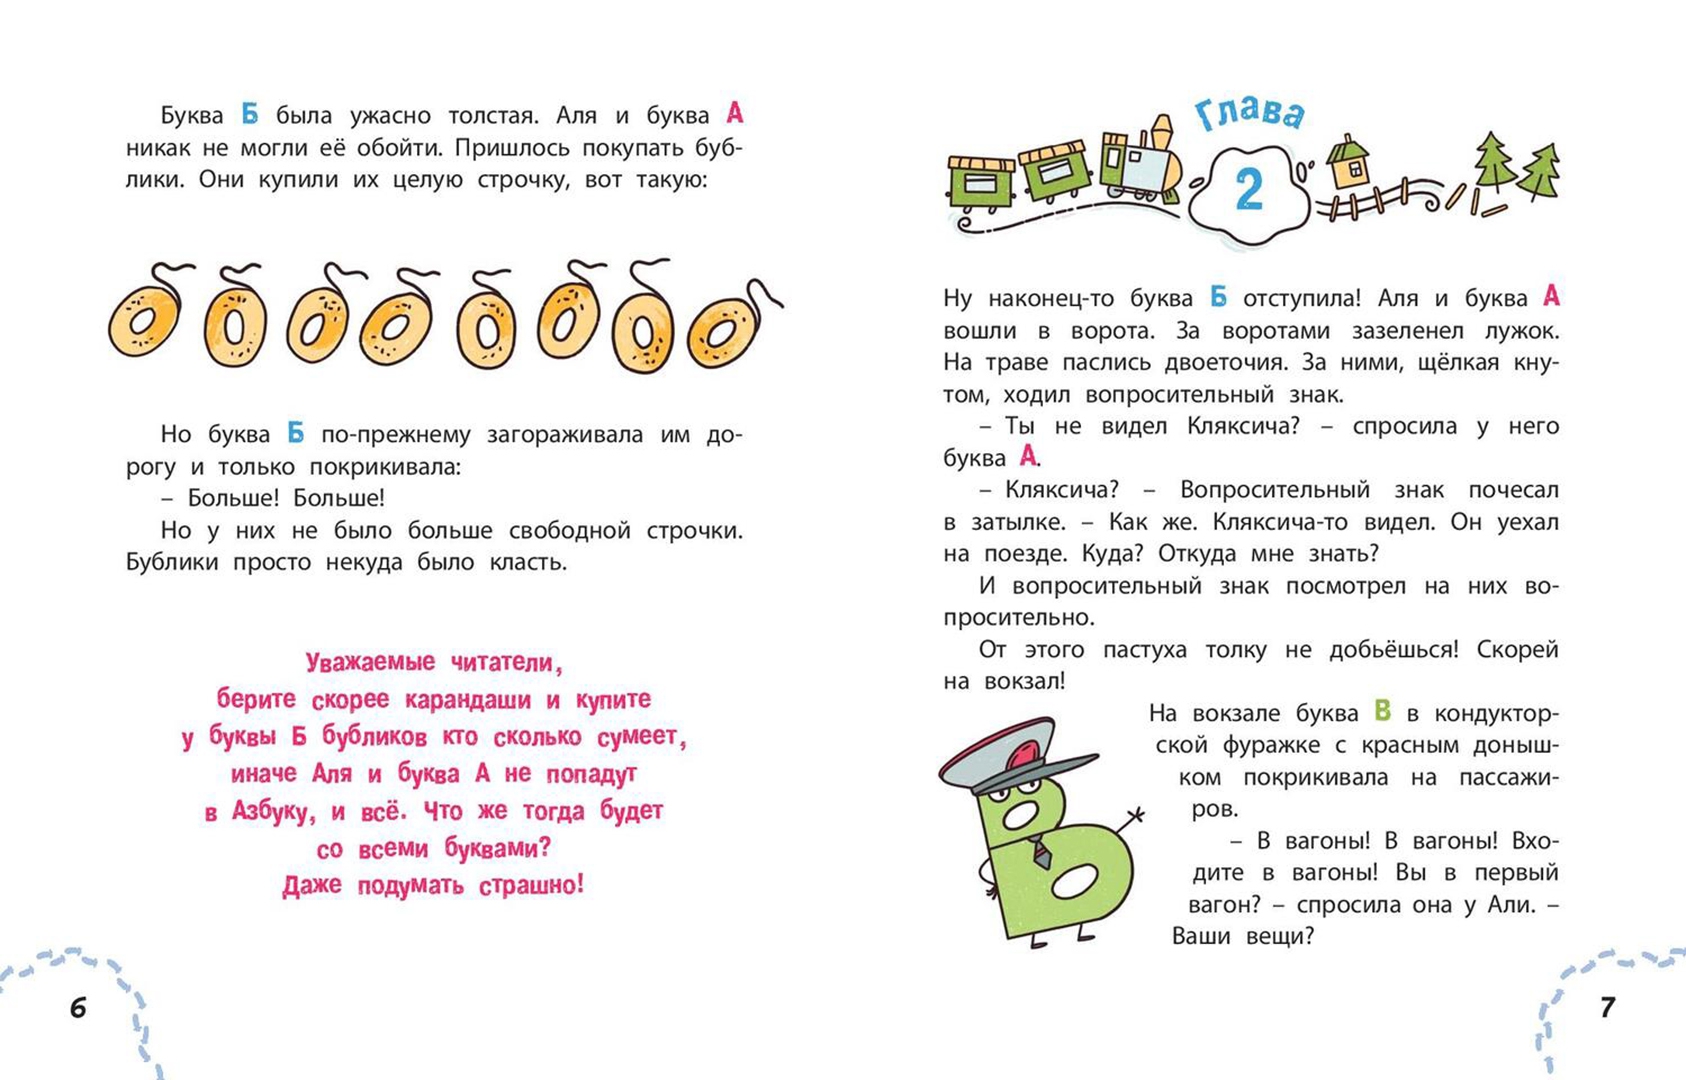 Буква Б была ужасно толстая. Аля и буква А
никак не могли её обойти. Пришлось покупать буб-
лики. Они купили их целую строчку, вот такую:
Но буква Б по-прежнему загораживала им до-
рогу и только покрикивала:
– Больше! Больше!
Но у них не было больше свободной строчки.
Бублики просто некуда было класть.
Уважаемые читатели,
берите скорее карандаши и купите
у буквы Б бубликов кто сколько сумеет,
иначе Аля и буква А не попадут
в Азбуку, и всё. Что же тогда будет
со всеми буквами?
Даже подумать страшно!
6
Глава
2
Ну наконец-то буква Б отступила! Аля и буква А
вошли в ворота. За воротами зазеленел лужок.
На траве паслись двоеточия. За ними, щёлкая кну-
том, ходил вопросительный знак.
– Ты не видел Кляксича? – спросила у него
буква А.
– Кляксича? – Вопросительный знак почесал
в затылке. – Как же. Кляксича-то видел. Он уехал
на поезде. Куда? Откуда мне знать?
И вопросительный знак посмотрел на них во-
просительно.
От этого пастуха толку не добьёшься! Скорей
на вокзал!
На вокзале буква В в кондуктор-
ской фуражке с красным доныш-
ком покрикивала на пассажи-
ров.
– В вагоны! В вагоны! Вхо-
дите в вагоны! Вы в первый
вагон? – спросила она у Али. –
Ваши вещи?
7